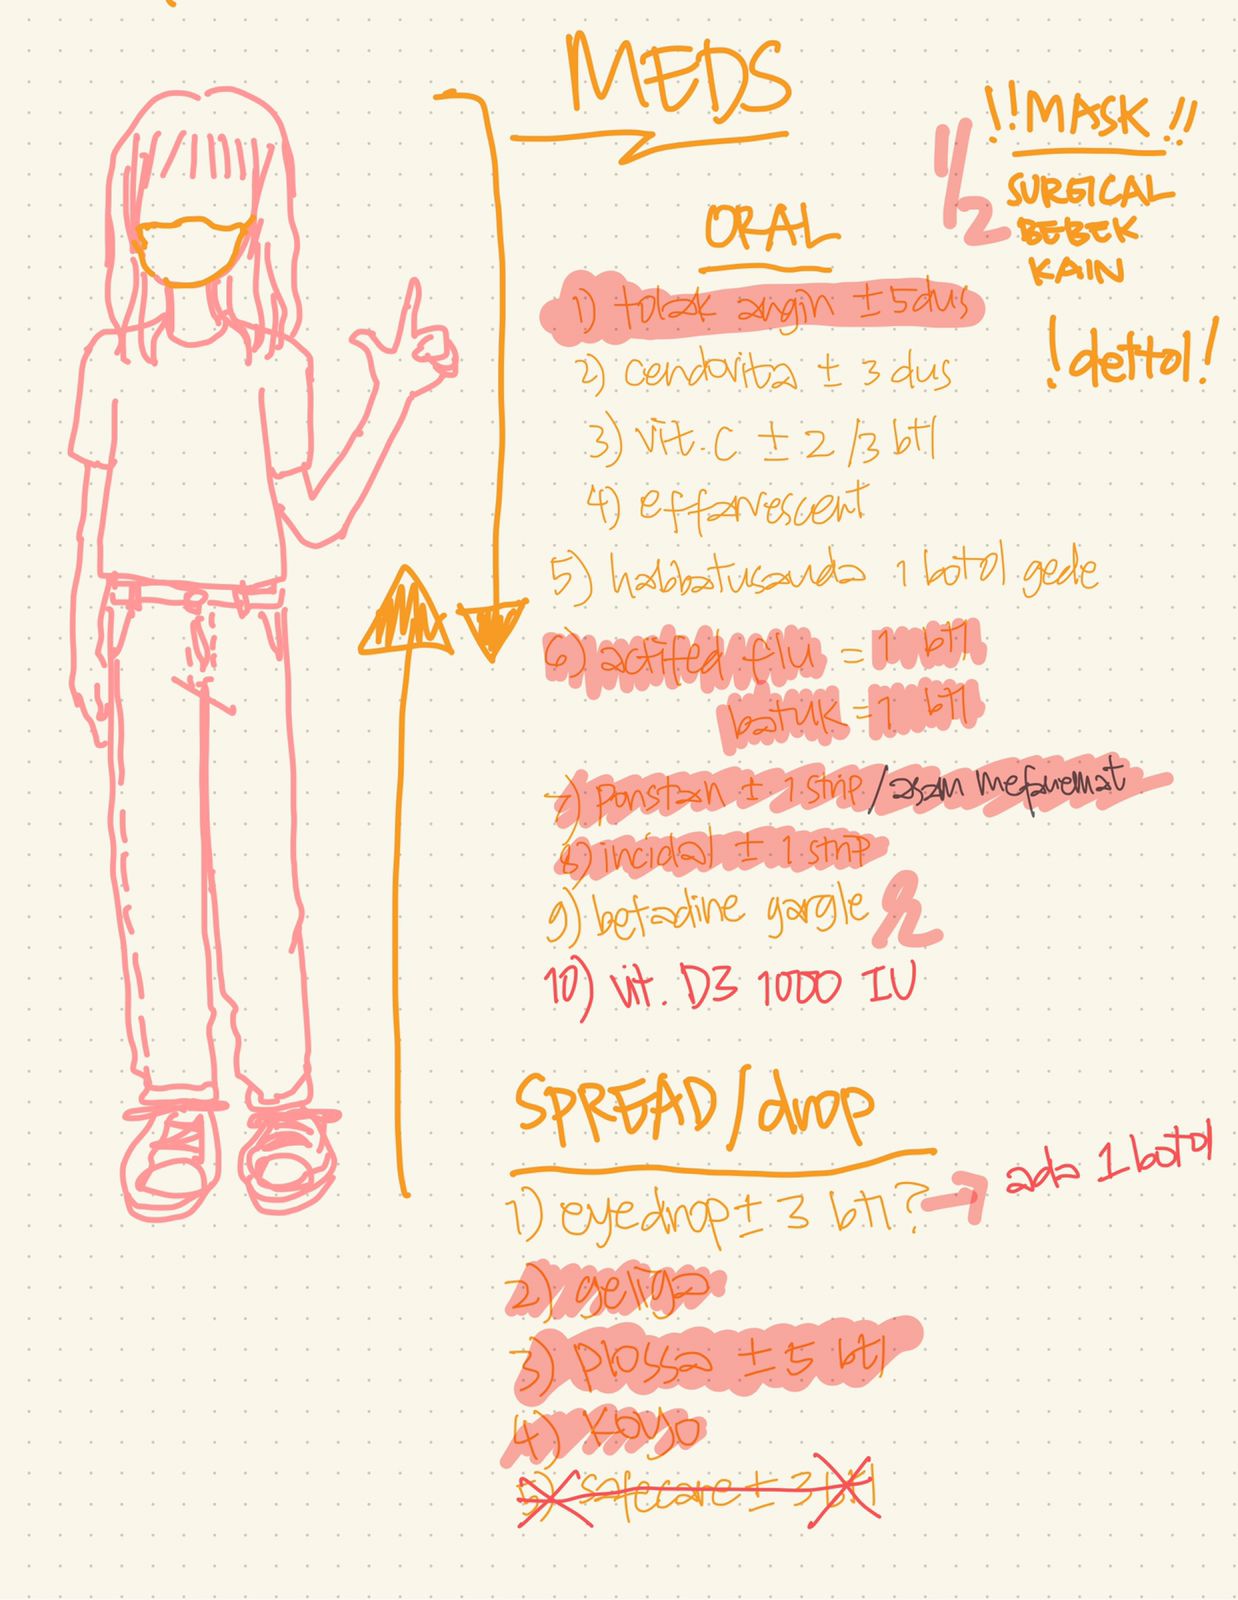 MEDS
!!MASK!!
1/2
SURGICAL
BEBEK
KAIN
!dettol!
ORAL
1) tolak angin ± 5 dus
2) cendovita ± 3 dus
3) vit. C ± 2/3 btl
4) effarvescent
5) habbatusauda 1 botol gede
6) actifed flu = 1 btl
batuk = 1 btl
7) Ponstan ± 1 strip /asam mefanemat
8) incidal ± 1 strip
9) betadine gargle
10) vit. D3 1000 IU
SPREAD/drop
1) eyedrop ± 3 btl? → ada 1 botol
2) geliga
3) plossa ± 5 btl
4) koyo
5) safecare ± 3 btl